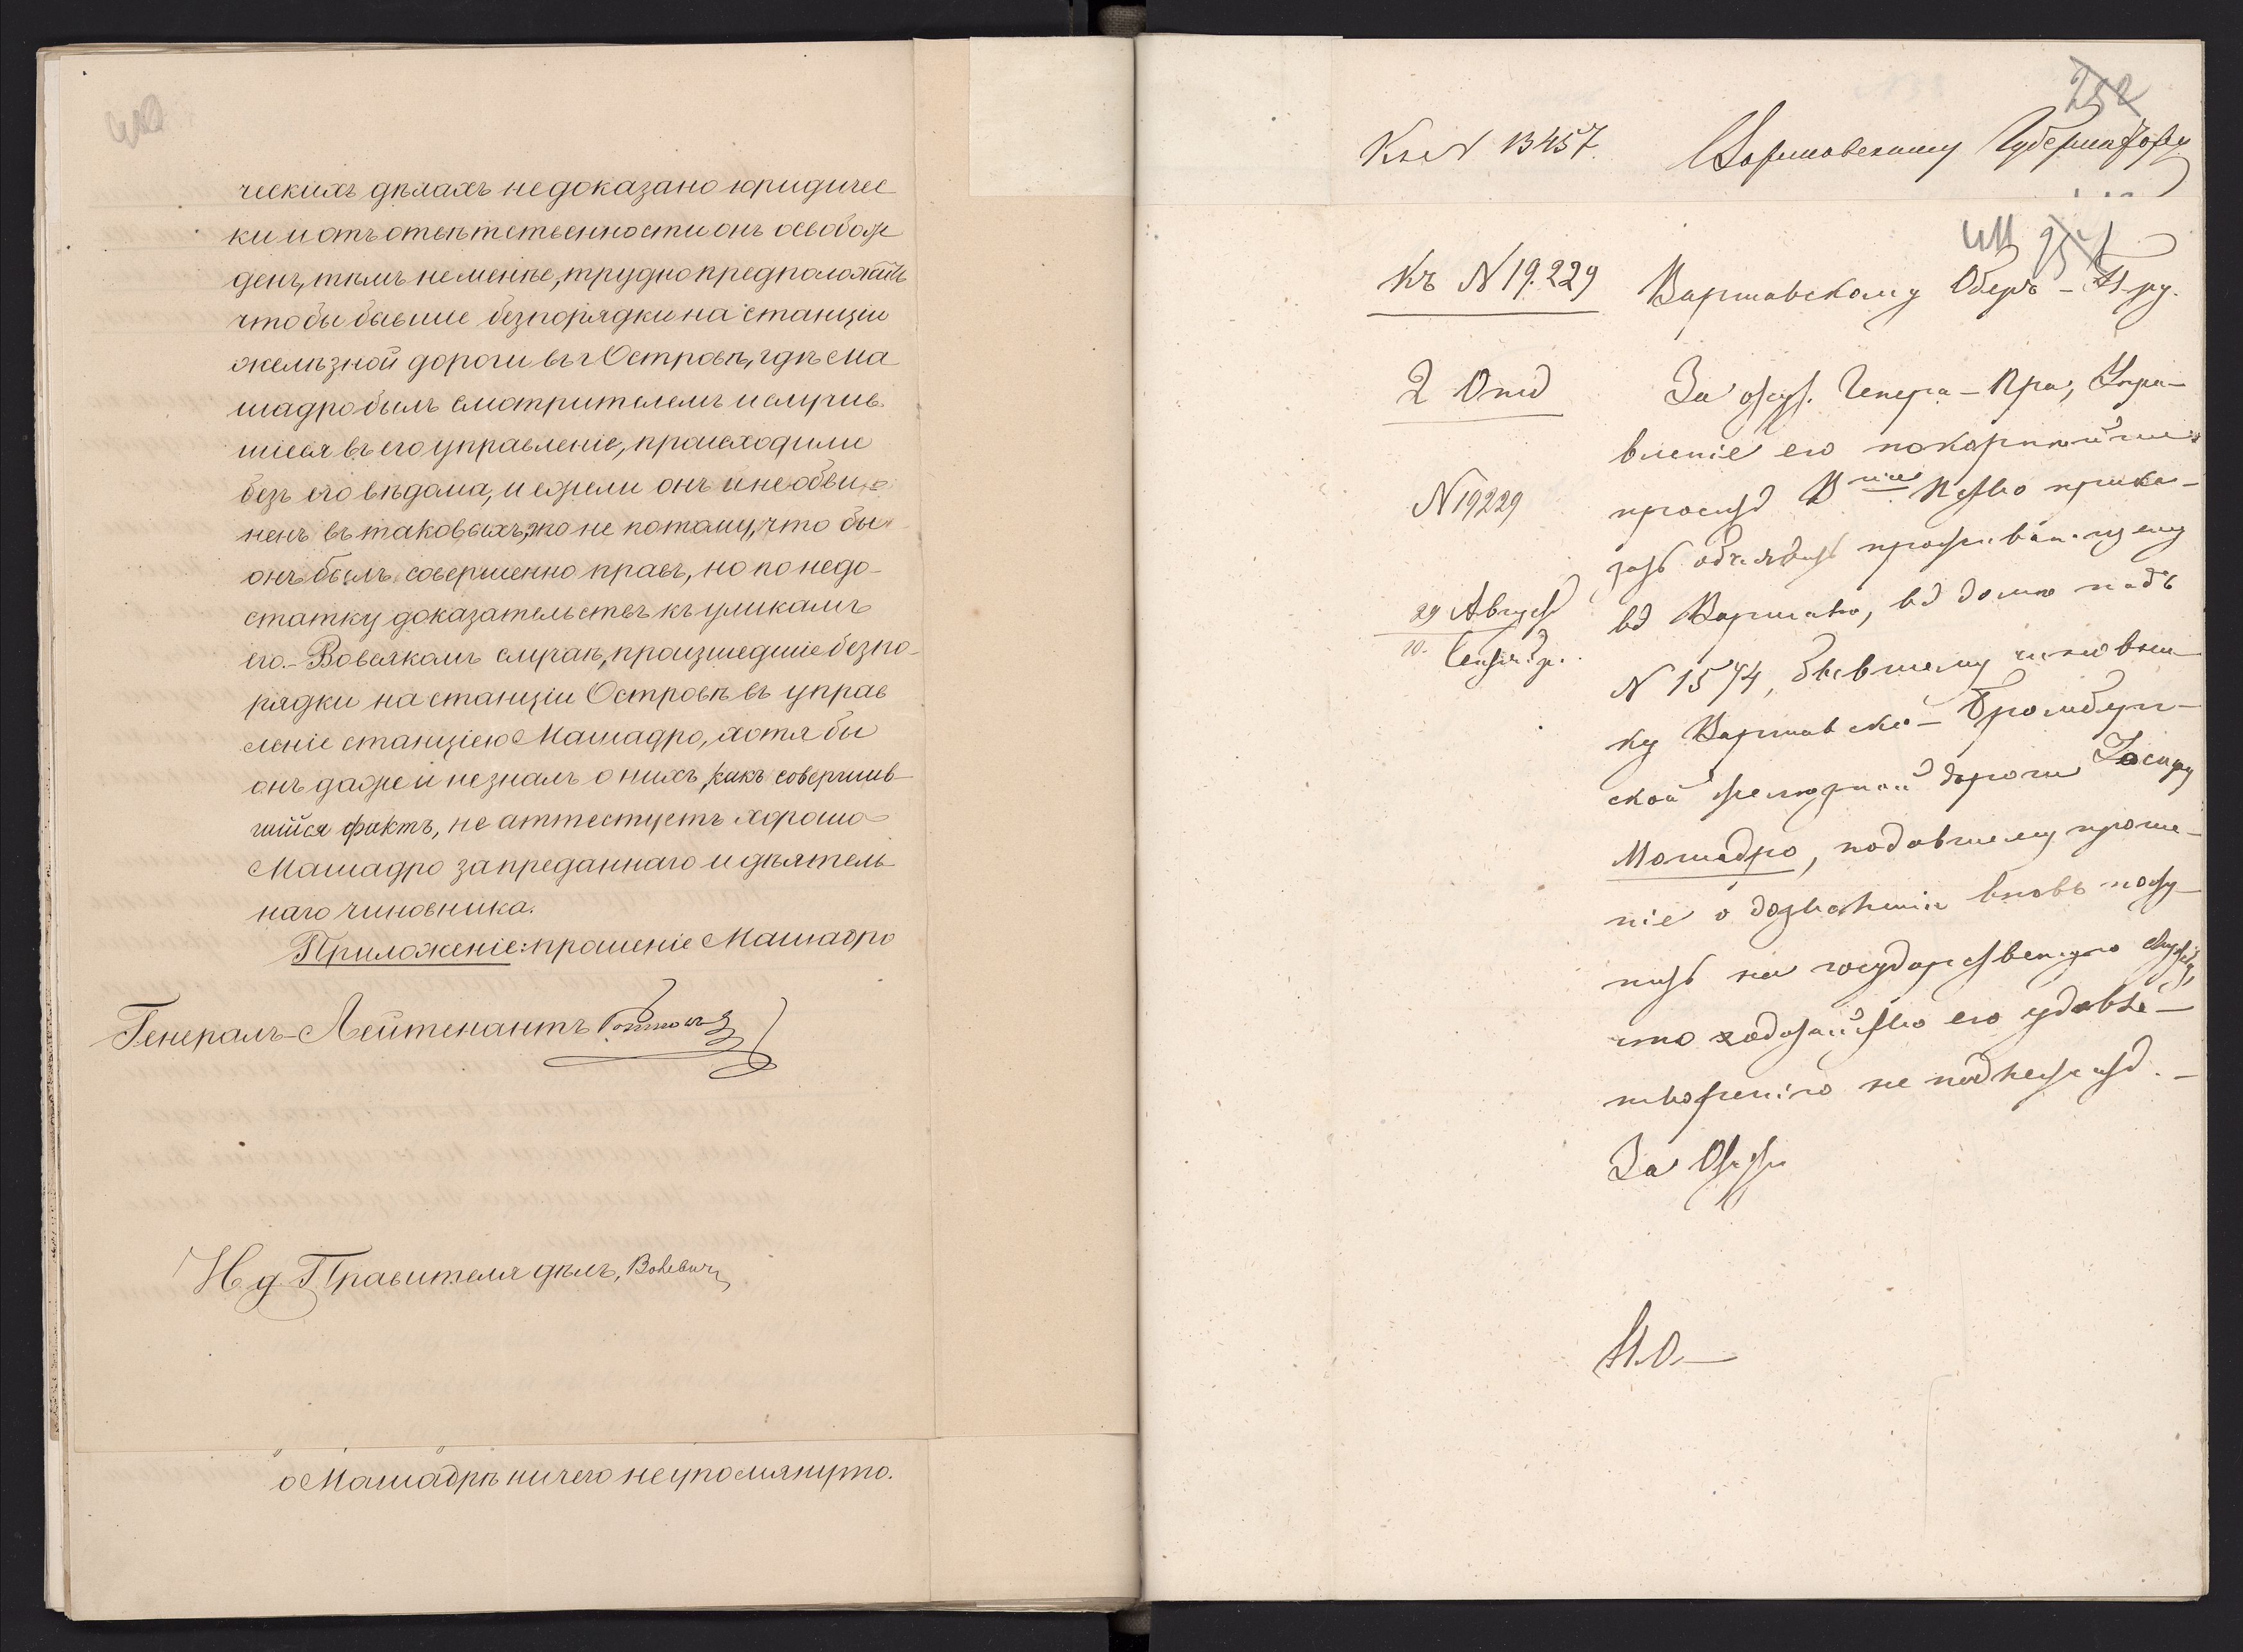 ческихъ дѣлахъ не доказано юридичес
ки и отъ отвѣтственности онъ освобож
денъ, тѣмъ не менѣе, трудно предположить
чтобы бывшие безпорядки на станціи
желѣзной дороги въ г Островѣ, гдѣ Ма
шадро былъ смотрителемъ и случив
шіеся въ его управленіе, происходили
безъ его вѣдома, и ежели онъ и не обви
ненъ въ таковыхъ, то не потому, что бы
онъ былъ совершенно правъ, но по недо-
статку доказательствъ къ уликамъ
его. - Во всякомъ случаѣ, произшедшіе безпо-
рядки на станціи Островѣ въ управ
леніе станціею Машадро, хотя бы
онъ даже и не зналъ о нихъ, какъ совершив-
шійся фактъ, не аттестуетъ хорошо
Машадро за преданнаго и дѣятель
наго чиновника.
Приложеніе: прошеніе Машадро
Генералъ-Лейтенантъ
И д Правителя дѣлъ,
о Машадрѣ ничего не упомянуто.
252
N 13457. Варшавскому Губернатору
411
Къ N 19.229 Варшавскому Оберъ-
2 Отд За Генер
вленіе его покорнѣйше
N 19229 проситъ прика-
зать объявить проживающему
29 Август въ Варшавѣ, въ домѣ подъ
10. Сентяб.
N 1574, бывшему чиновни
ку Варшавско-Бромберг-
ской желѣзной дороги
Машадро, подавшему проше-
ніе о дозволеніи вновь посту-
пить на государственную службу,
что ходатайство его удовле-
творенію не подлежитъ. -
За